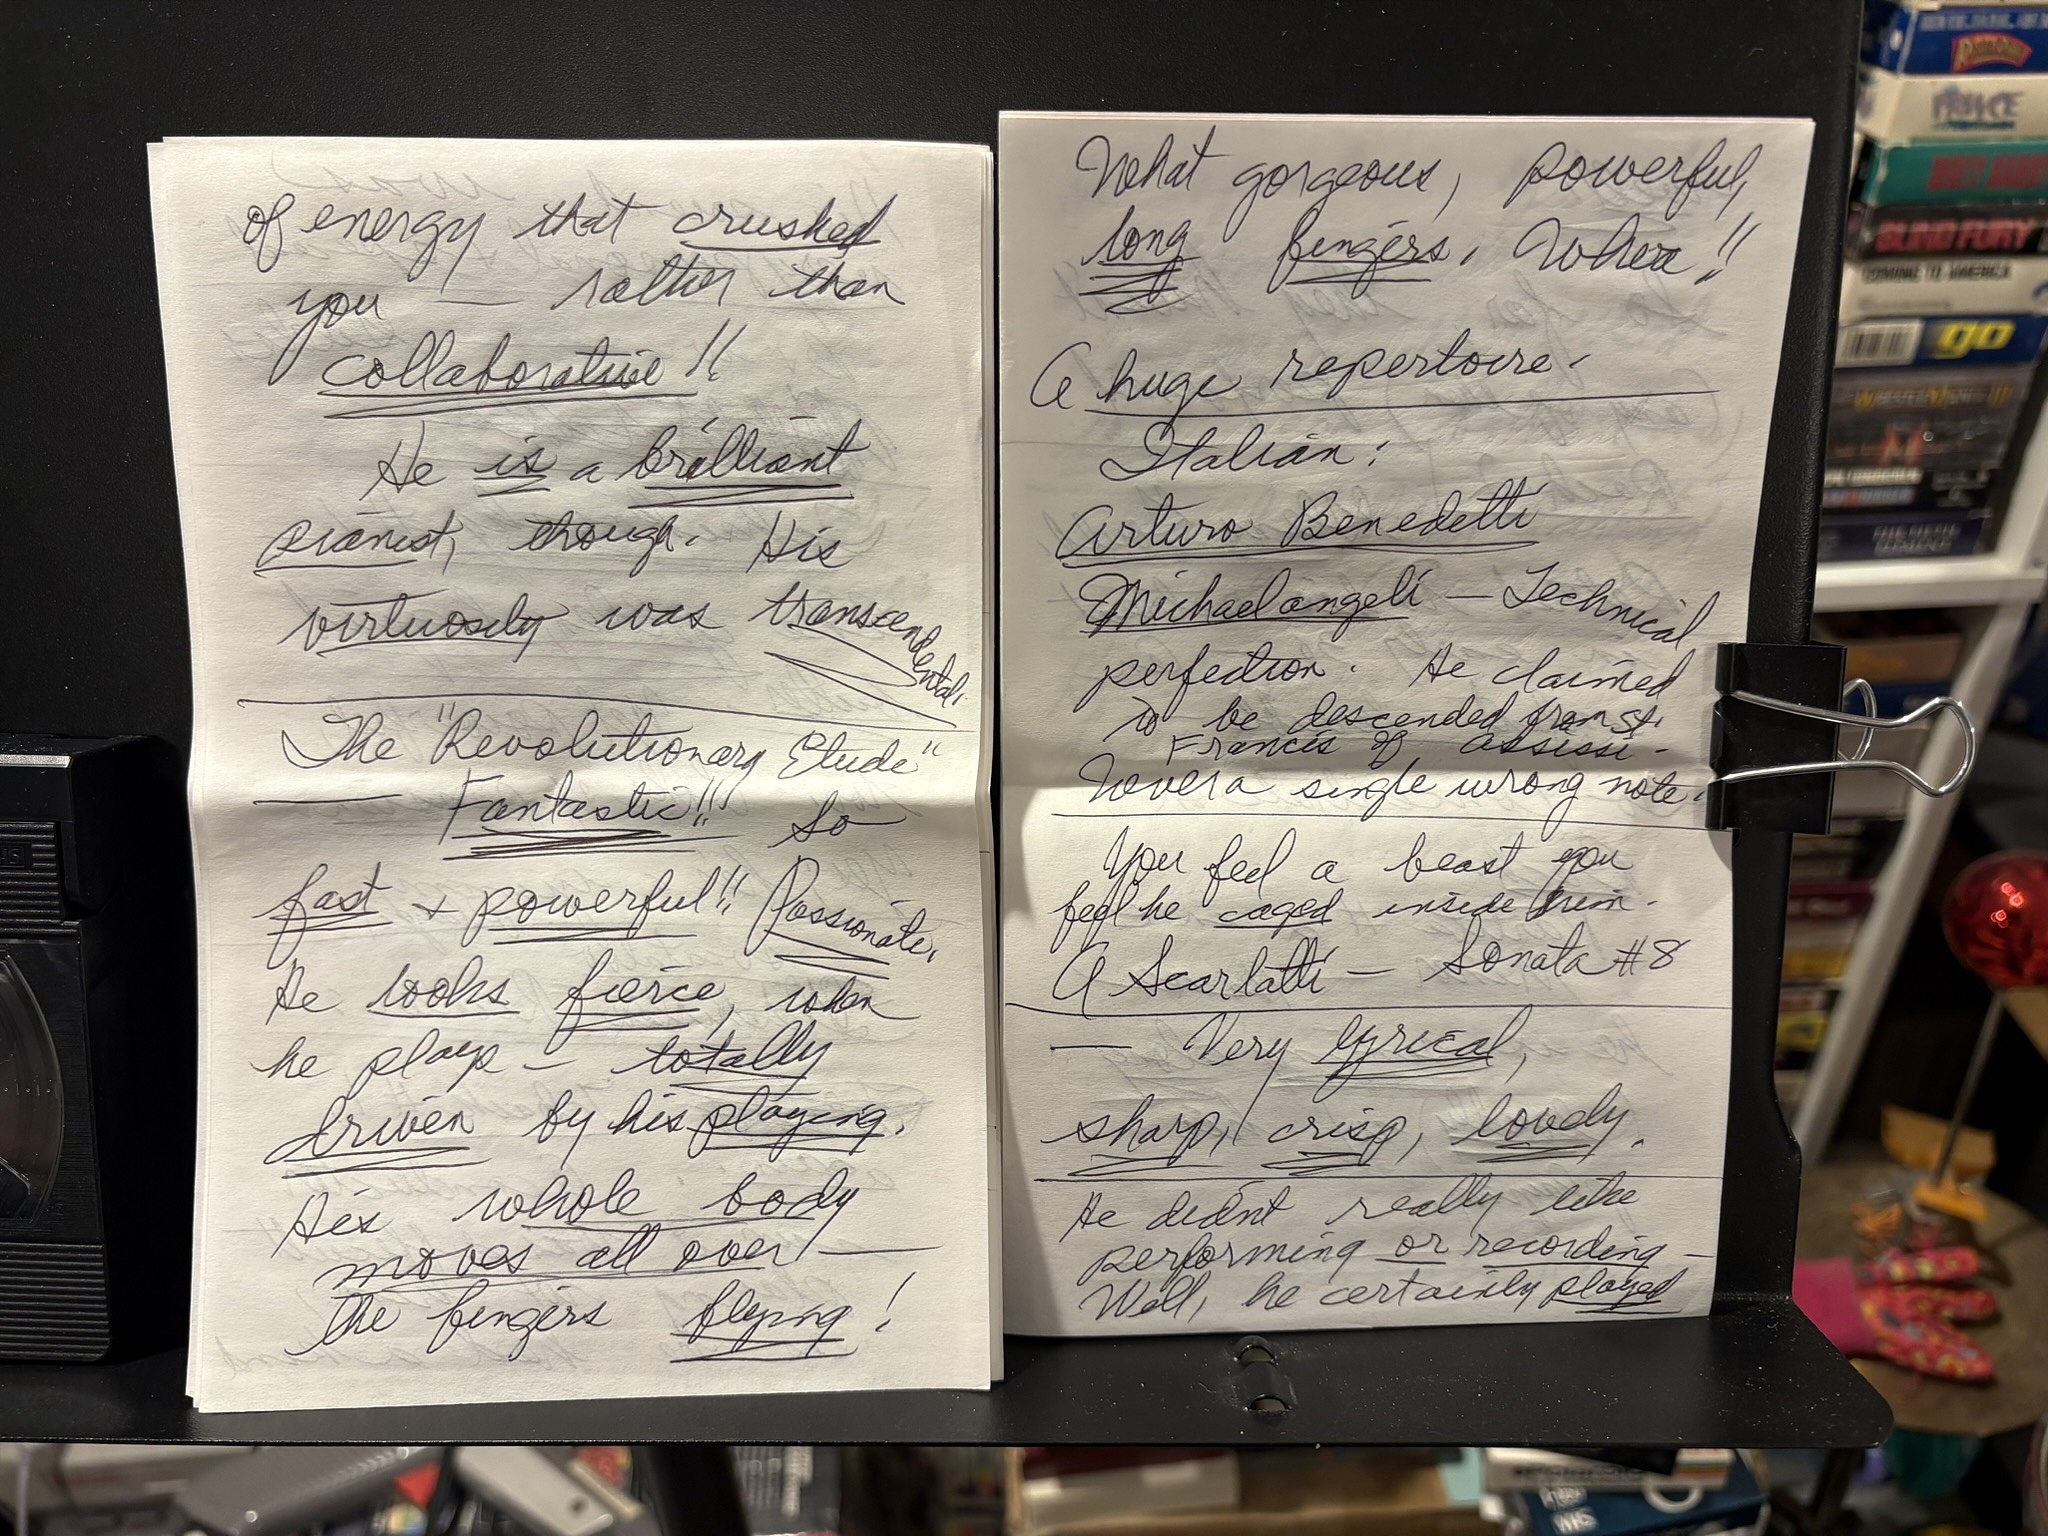 of energy that crushed
you — rather than
collaborative!!
He is a brilliant
pianist, though. His
virtuosity was transcendental.
The "Revolutionary Etude"
— Fantastic!! So
fast + powerful!! Passionate.
He looks fierce, when
he plays — totally
driven by his playing.
His whole body
moves all over —
the fingers flying!
What gorgeous, powerful,
long fingers. Whew!!
A huge repertoire.
Italian:
Arturo Benedetti
Michaelangeli — Technical
perfection. He claimed
to be descended from St.
Francis of Assissi.
Never a single wrong note.
You feel a beast you
feel he caged inside him.
A Scarlatti — Sonata #8
— Very lyrical,
sharp, crisp, lovely.
He didnt really like
performing or recording —
Well, he certainly played
PRINCE
BLIND FURY
COMING TO AMERICA
go
WRESTLEMANIA III